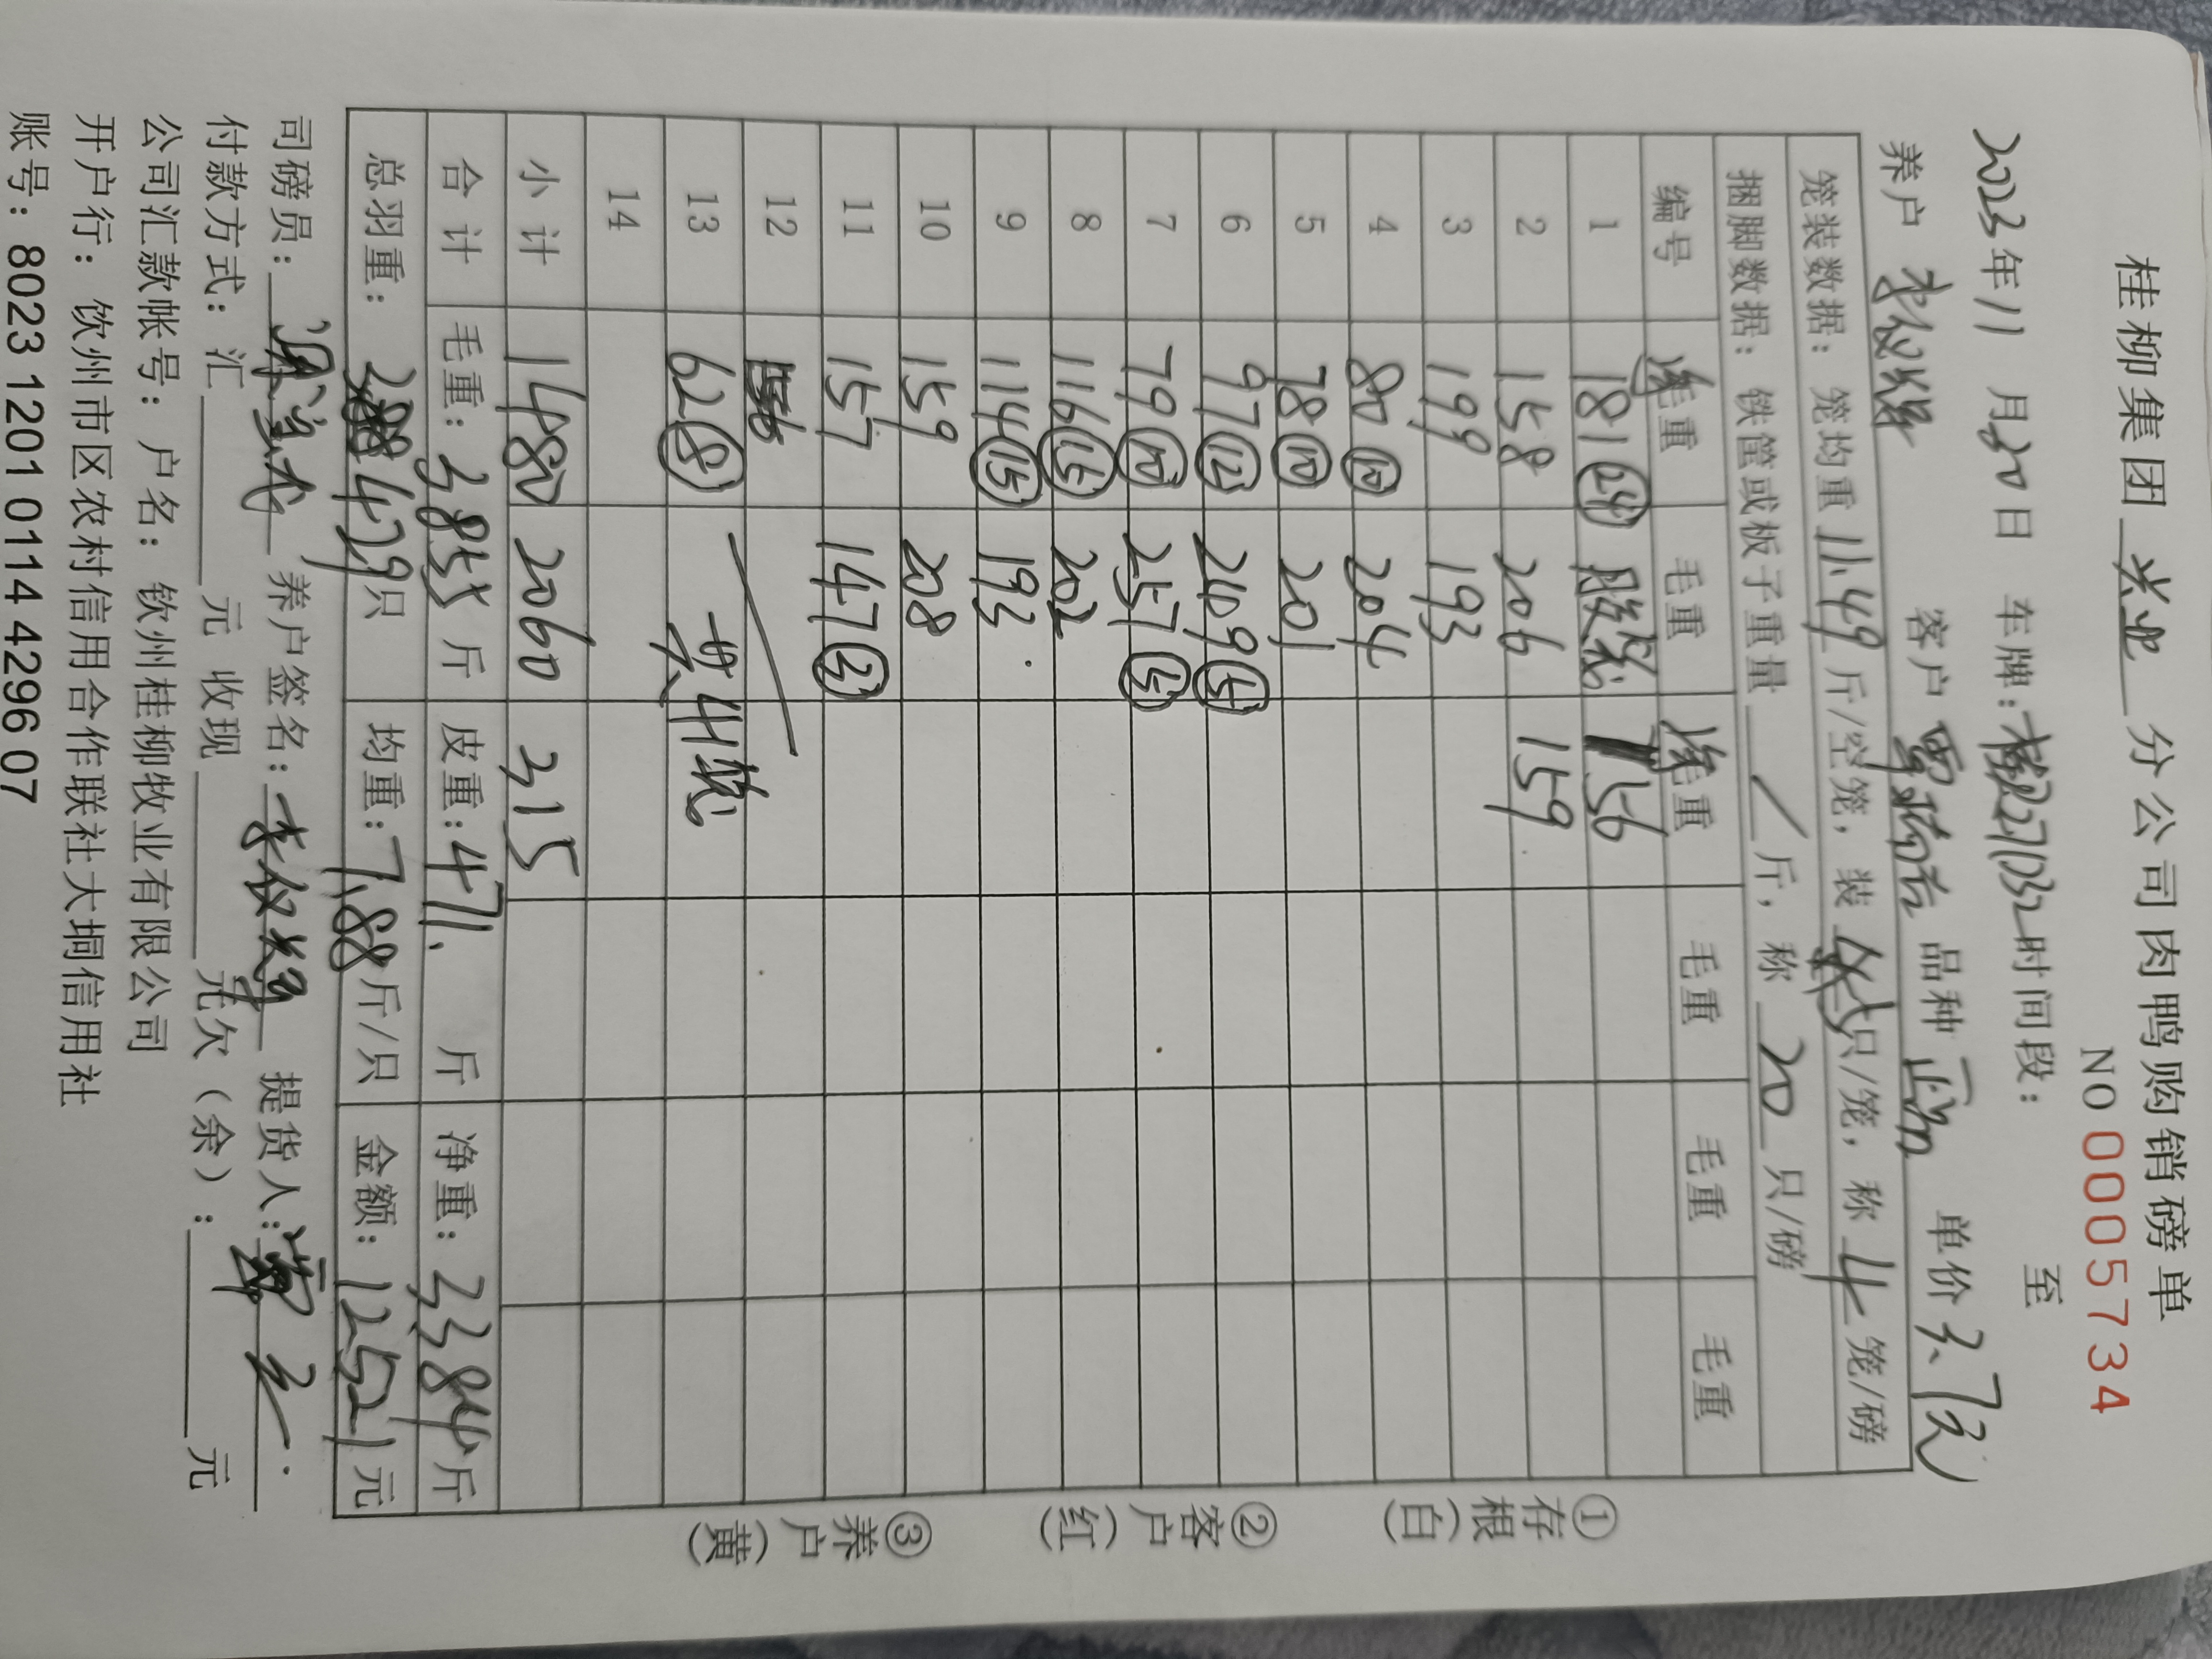 桂柳集团 兴业 分公司肉鸭购销磅单
NO 0005734
2023年11月20日 车牌: 时间段: 至
养户 客户 品种 单价 3.7元
笼装数据: 笼均重 11.49 斤/空笼, 装 只/笼, 称 4 笼/磅
捆脚数据: 铁筐或板子重量 / 斤, 称 20 只/磅
编号 净重 毛重 净重 毛重 毛重 毛重
1 181 (24) 156
2 158 206 159
3 199 193
4 80 (10) 204
5 78 (10) 201
6 97 (12) 209
7 79 (10) 257 (5)
8 116 (15) 202
9 114 (15) 193
10 159 208
11 157 147 (3)
12
13 62 (8) 共41笼
14
小计 1480 2060 315
合计 毛重: 3855 斤 皮重: 471. 斤 净重: 3384 斤
总羽重: 429只 均重: 7.88斤/只 金额: 12521元
司磅员: 养户签名: 提货人:
付款方式: 汇 元 收现 元欠(余): 元
公司汇款帐号: 户名: 钦州桂柳牧业有限公司
开户行: 钦州市区农村信用合作联社大垌信用社
账号: 8023 1201 0114 4296 07
①存根(白) ②客户(红) ③养户(黄)